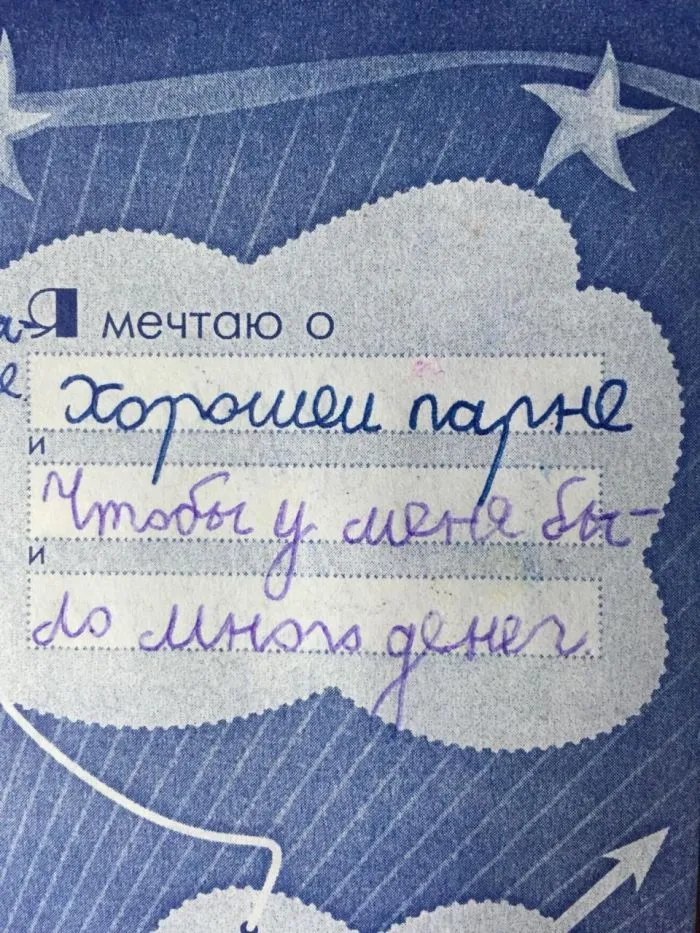 Я мечтаю о
хорошем парне
и
Чтобы у меня бы-
и
ло много денег